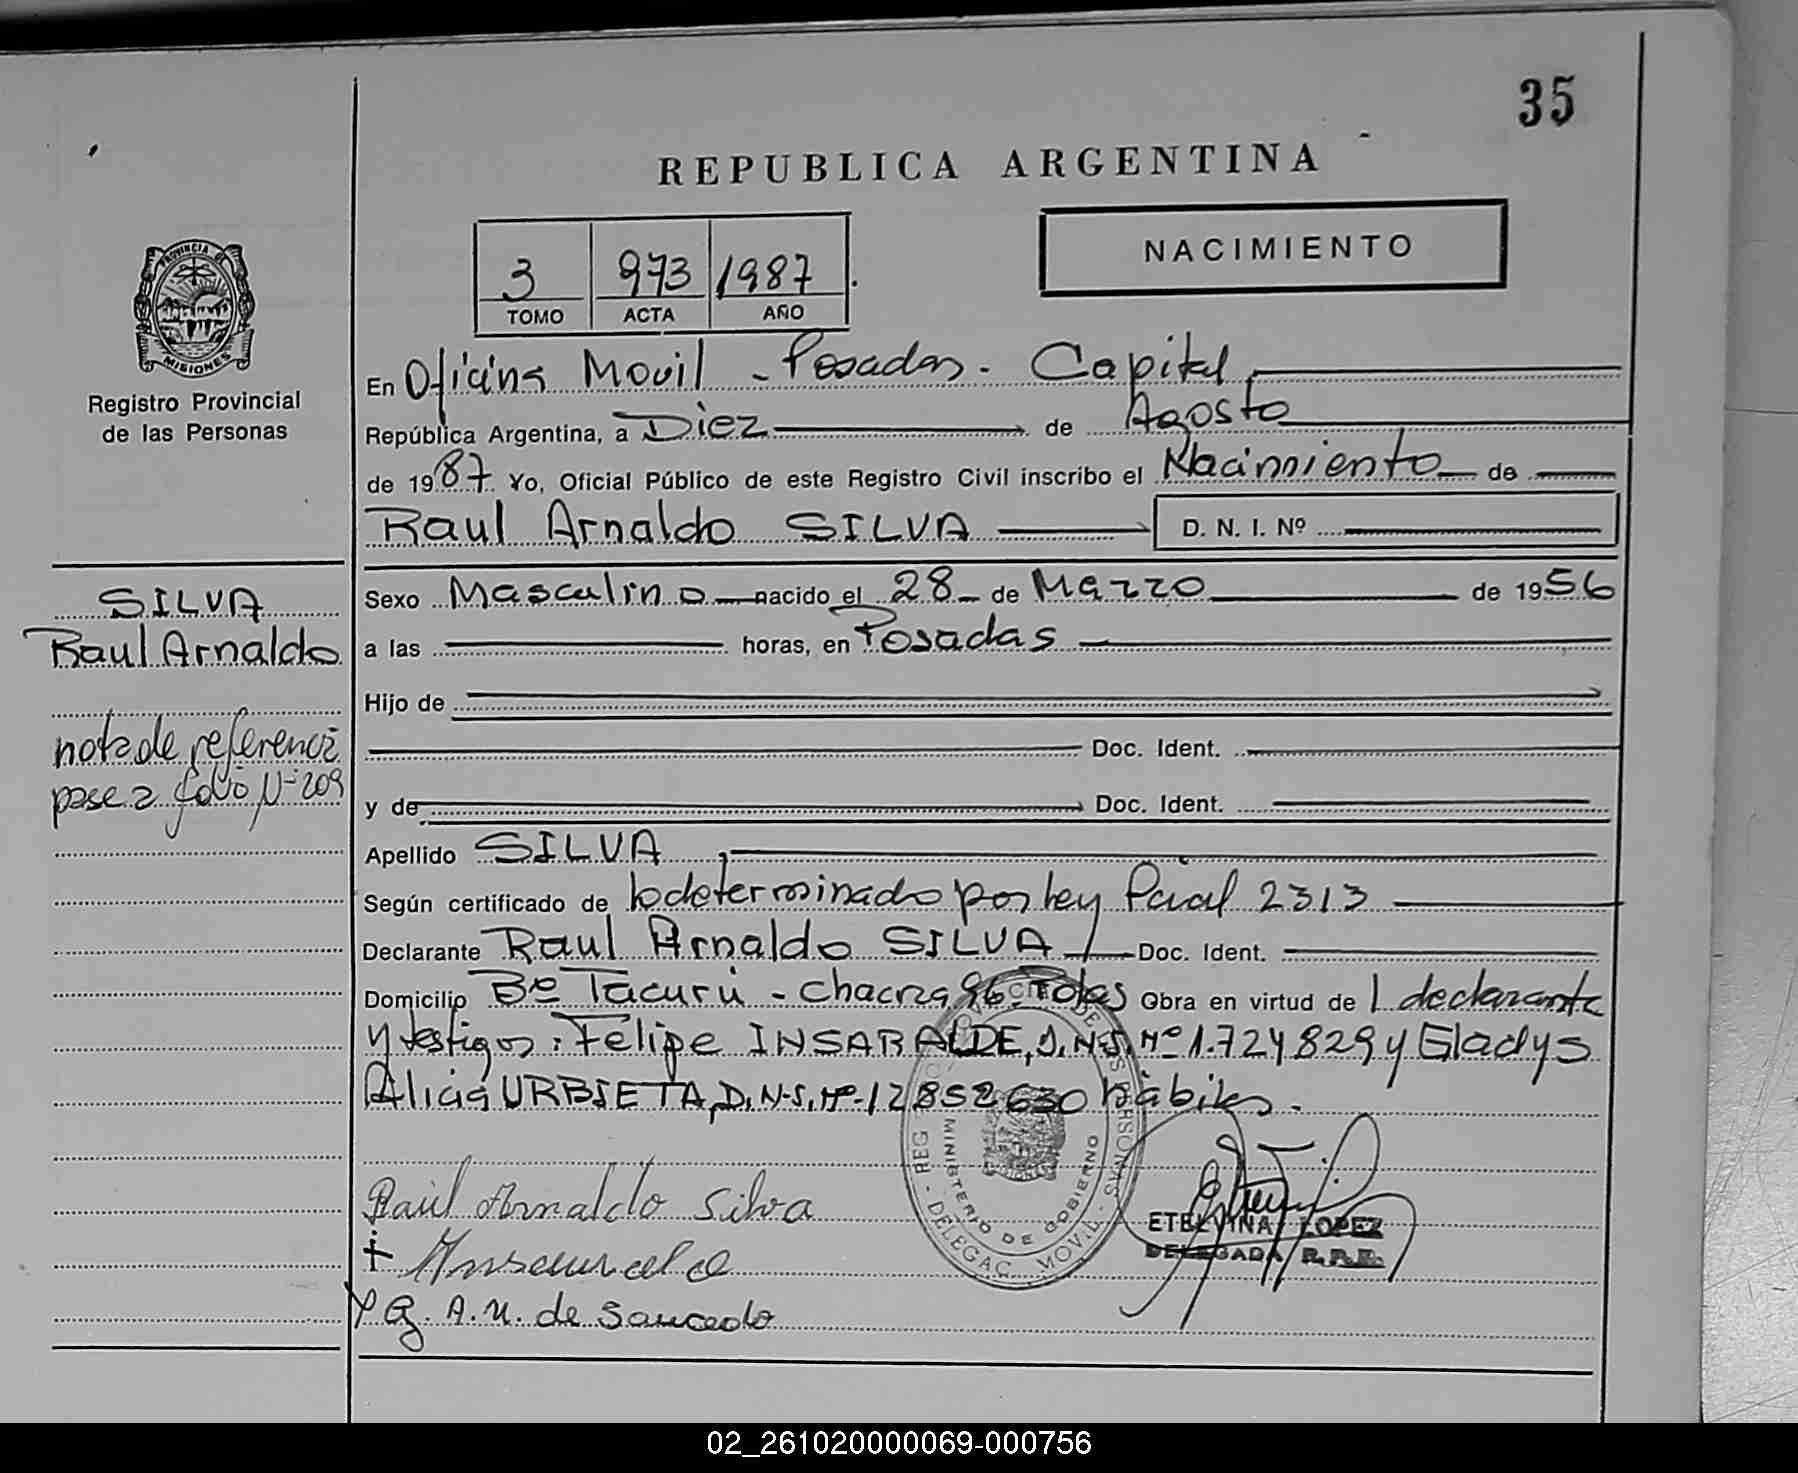 35
REPUBLICA ARGENTINA
3 973 1987
TOMO ACTA AÑO
NACIMIENTO
PROVINCIA DE
MISIONES
Registro Provincial
de las Personas
En Oficina Movil - Posadas - Capital
República Argentina, a Diez de Agosto
de 1987. Yo, Oficial Público de este Registro Civil inscribo el Nacimiento de
Raul Arnaldo SILVA D. N. I. Nº
SILVA
Raul Arnaldo
nota de referencia
pase a folio Nº 209
Sexo Masculino nacido el 28 de Marzo de 1956
a las horas, en Posadas
Hijo de
Doc. Ident.
y de Doc. Ident.
Apellido SILVA
Según certificado de lo determinado por ley Pcial 2313
Declarante Raul Arnaldo SILVA Doc. Ident.
Domicilio Bº Tacurú - chacra 96 - Pdas Obra en virtud de l declarante
y testigos: Felipe INSARALDE, D.N.I. Nº 1.724829 y Gladys
Alicia URBIETA, D.N.I. Nº 12852630 hábiles.
REG. PROVINCIAL DE LAS PERSONAS - DELEGAC. MOVIL -
MINISTERIO DE GOBIERNO
Raúl Arnaldo Silva
ETELVINA LOPEZ
DELEGADA R.P.P.
G. A. U. de Saucedo
02_261020000069-000756